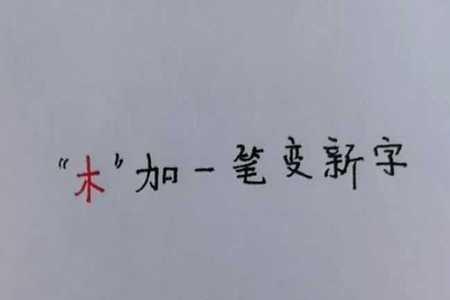 “木”加一笔变新字